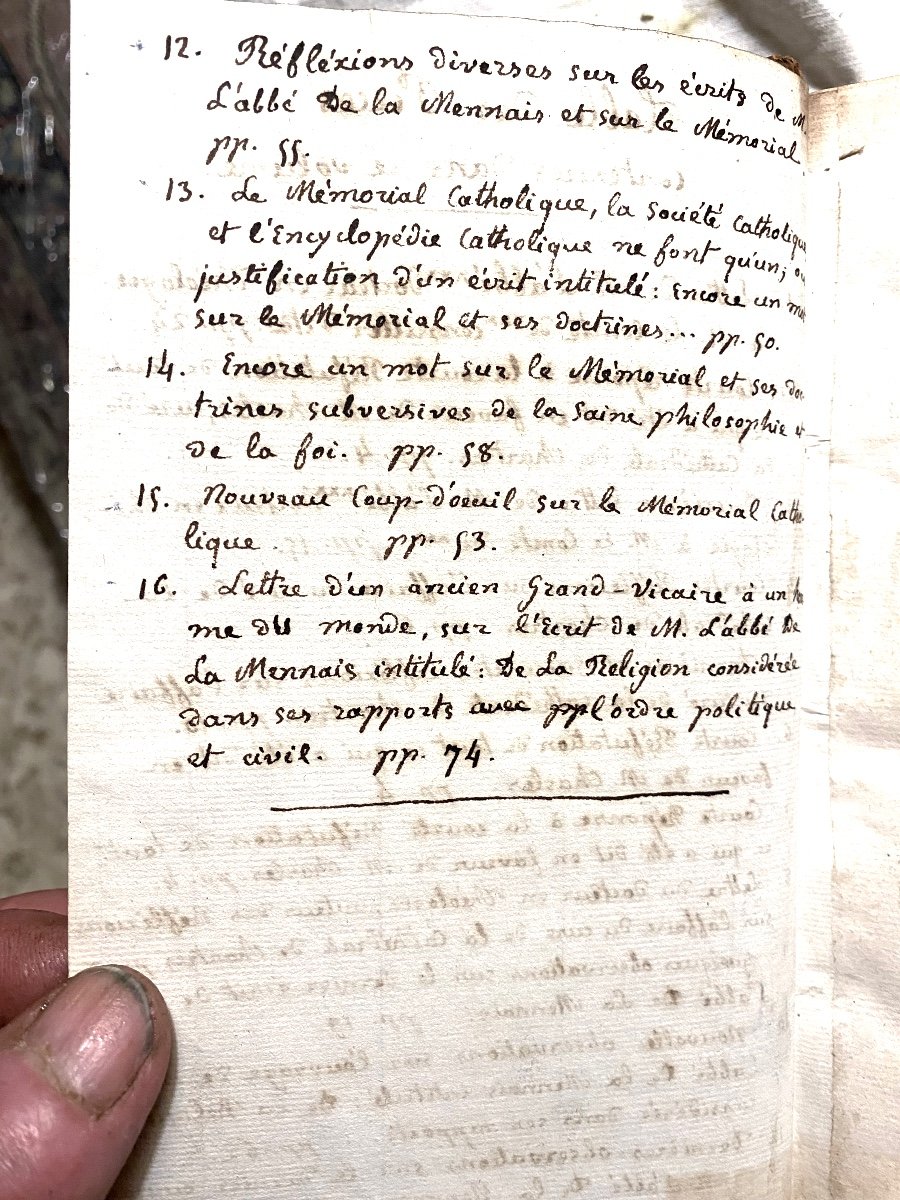 12. Réfléxions diverses sur les écrits de M.
L'abbé De la Mennais et sur le Mémorial
pp. 55.
13. Le Mémorial Catholique, la Société Catholique
et l'Encyclopédie Catholique ne font qu'un; ou
justification d'un écrit intitulé: Encore un mot
sur le Mémorial et ses doctrines... pp. 50.
14. Encore un mot sur le Mémorial et ses doc
trines subversives de la Saine philosophie et
de la foi. pp. 58.
15. Nouveau Coup-d'oeuil sur le Mémorial Catho
lique. pp. 53.
16. Lettre d'un ancien Grand-Vicaire à un ho
me du monde, sur l'Ecrit de M. L'abbé De
La Mennais intitulé: De La Religion considérée
dans ses rapports avec ppl'ordre politique
et civil. pp. 74.